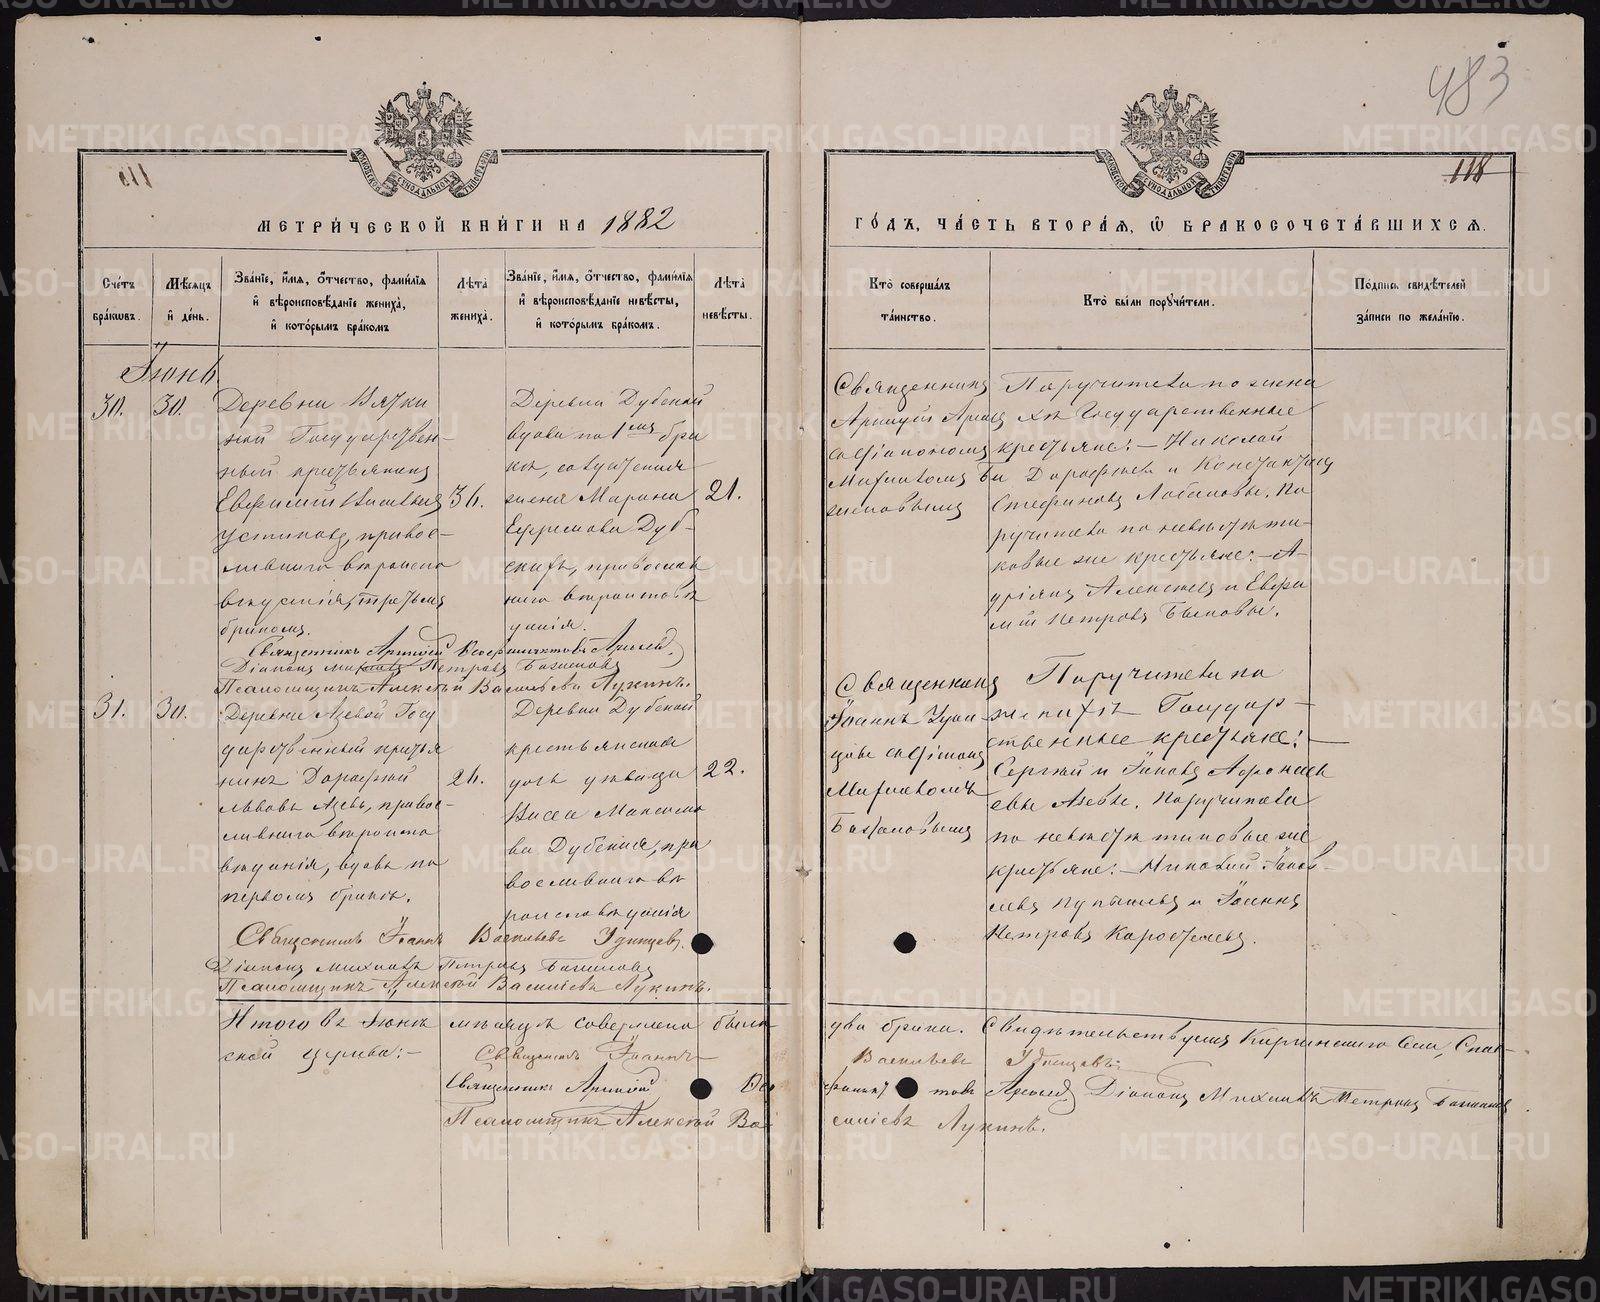 483
118
МЕТРИ́ЧЕСКОЙ КНИ́ГИ НА 1882
ГО́ДЪ, ЧА́СТЬ ВТОРА́Я, Ѡ БРАКОСОЧЕТА́ВШИХСЯ.
Сче́тъ бра́кѡвъ.
Мѣ́сяцъ и҆ де́нь.
Зва́нїе, и҆́мя, ѻ҆́тчество, фами́лїя и҆ вѣроисповѣ́данїе жениха̀, и҆ кото́рымъ бра́комъ
Лѣ́та жениха̀.
Зва́нїе, и҆́мя, ѻ҆́тчество, фами́лїя и҆ вѣроисповѣ́данїе невѣ́сты, и҆ кото́рымъ бра́комъ.
Лѣ́та невѣ́сты.
Кто̀ соверша́лъ та́инство.
Кто̀ бы́ли порꙋчи́тели.
По́дпись свидѣ́телей за́писи по жела́нїю.
Іюнь
30.
30.
Деревни Вятки
ной Государствен-
ный крестьянинъ
Евфимій
Устиновъ, право-
славнаго вѣроиспо
вѣданія, третьимъ
бракомъ.
36.
Деревни Дубской
вдова по 1мъ бра
кѣ,
жена Марина
Ефремова Дуб-
скихъ, православ
наго вѣроисповѣ
данія.
21.
Священникъ
Аркадій
съ діакономъ
Михаиломъ Ба
женовымъ
Поручители по жени
хѣ Государственные
крестьяне:— Николай
Дорофеевъ и Константинъ
Стефановъ Лобановы. По
ручители по невѣстѣ та-
ковые же крестьяне:— А-
дріанъ Алексѣевъ и Евфи
мій Петровъ Быковы.
Священникъ Аркадій
Діаконъ Михаилъ Петровъ Баженовъ
Псаломщикъ Алексѣй Васильевъ Лукинъ.
31.
30.
Деревни Азевой Госу
дарственный крестья
нинъ Дорофей
Львовъ Азевъ, право-
славнаго вѣроиспо
вѣданія, вдовъ по
первомъ бракѣ.
26.
Деревни Дубской
крестьянская
дочь дѣвица
Васса Максимо
ва Дубская, пра
вославнаго вѣ
роисповѣданія
22.
Священникъ
Іоаннъ Удин
цовъ съ діакономъ
Михаиломъ
Баженовымъ
Поручители по
женихѣ Государ-
ственные крестьяне:—
Сергѣй и Іаковъ Афонась
евы Азевы. Поручители
по невѣстѣ таковые же
крестьяне:— Николай Іаков-
левъ и Іоаннъ
Петровъ Коростелевъ.
Священникъ Іоаннъ Васильевъ Удинцевъ.
Діаконъ Михаилъ Петровъ Баженовъ
Псаломщикъ Алексѣй Васильевъ Лукинъ.
Итого въ Іюнѣ мѣсяцѣ совершено было два брака. Свидѣтельствуемъ Киргинскаго Села, Спас-
ской церкви:— Священникъ Іоаннъ Васильевъ Удинцевъ.
Священникъ Аркадій Діаконъ Михаилъ Петровъ Баженовъ
Псаломщикъ Алексѣй Васильевъ Лукинъ.
METRIKI.GASO-URAL.RU